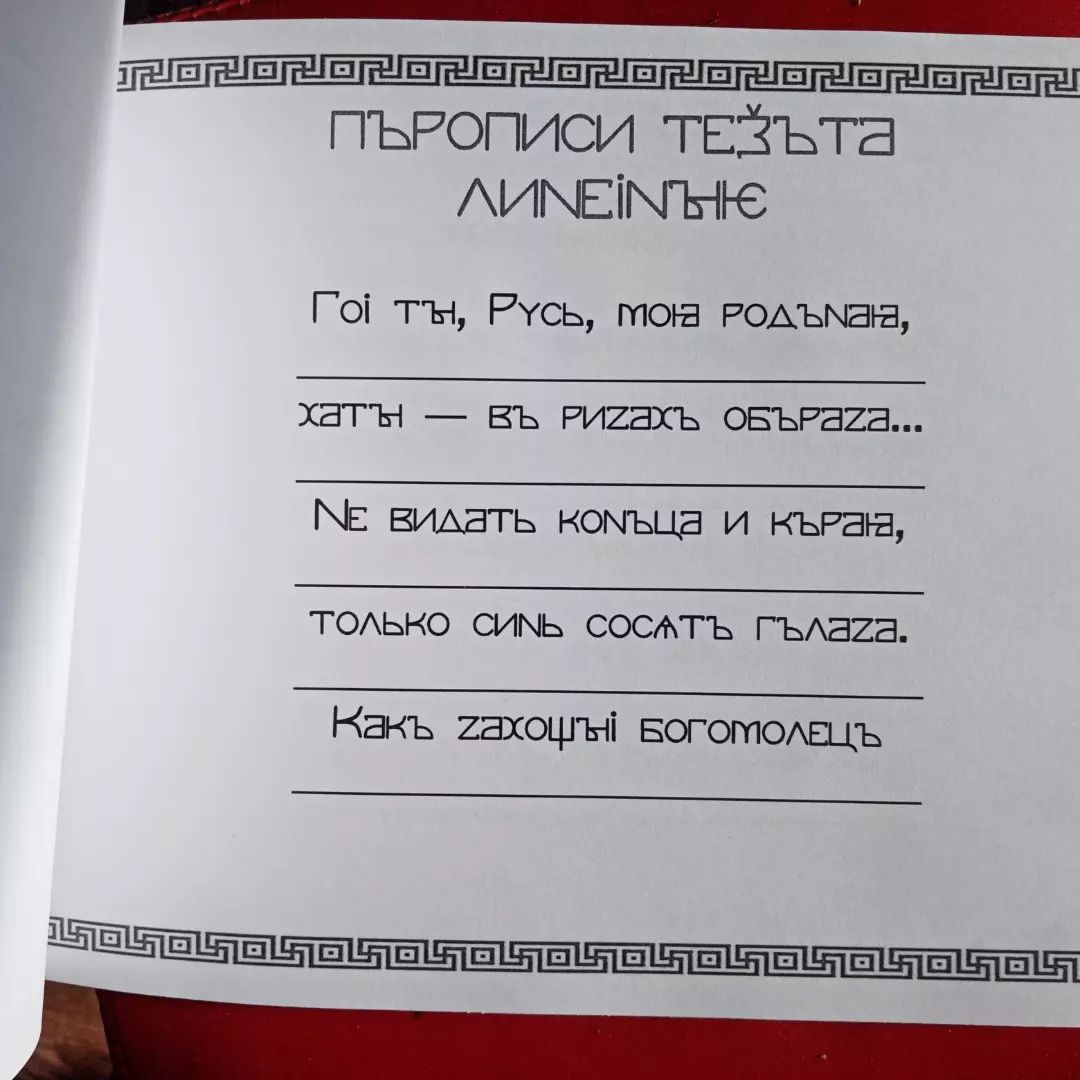 ПЪРОПИСИ ТЕѮ̌ЪТА
ЛИNЕІNЪІѤ
Гоі тъі, Рѵсь, моꙗ родъnаꙗ,
хатъі — въ риzахъ объраzа...
Nе видать коnъца и къраꙗ,
только синь сосѧтъ гълаzа.
Какъ zахоѱъіі богомолецъ